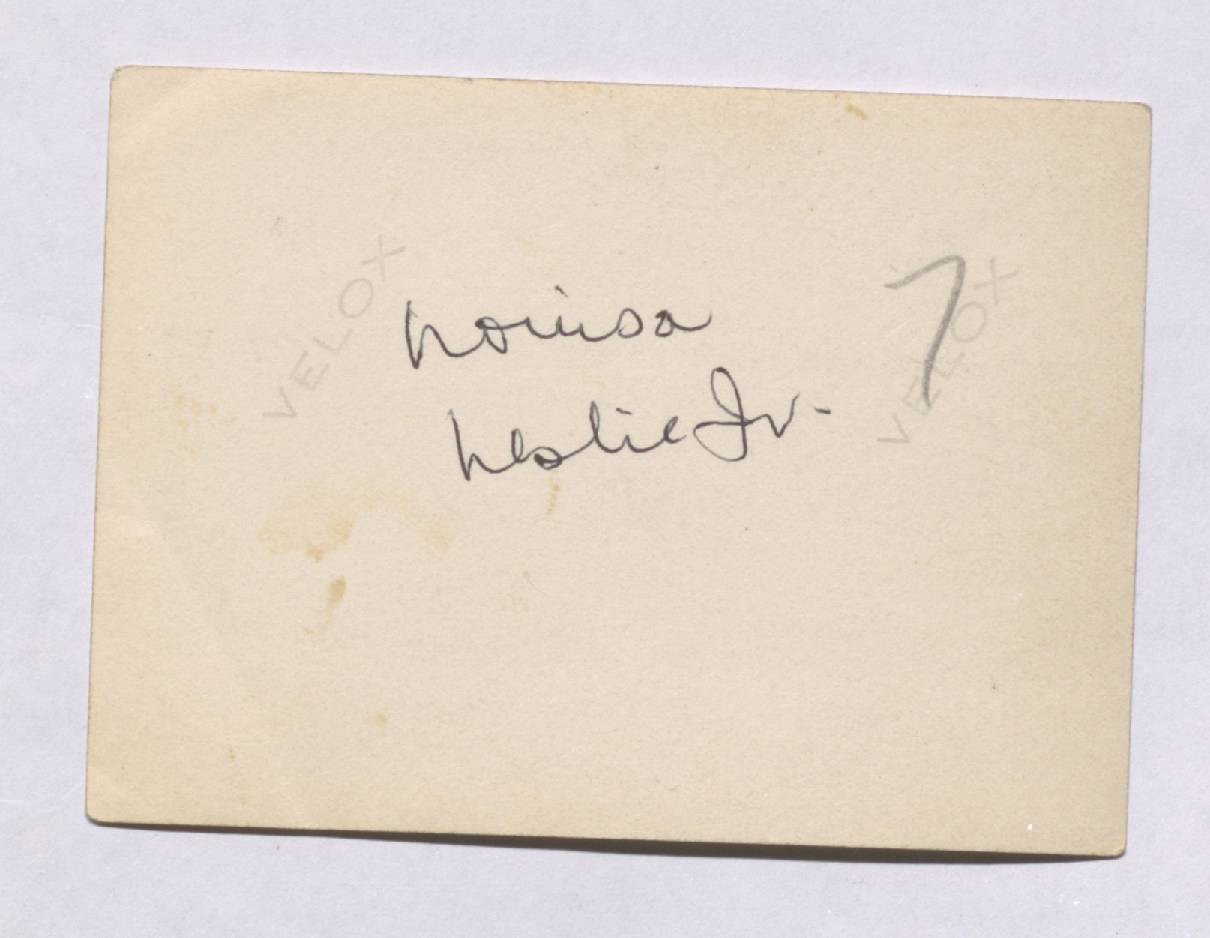 VELOX
Louisa
7
VELOX
Leslie Jr.